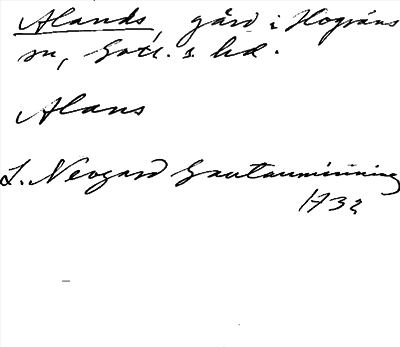 Alands, gård i Hogräns
sn, Gotl. s. hd.
Alans
L. Neogard Gautauminning
1732